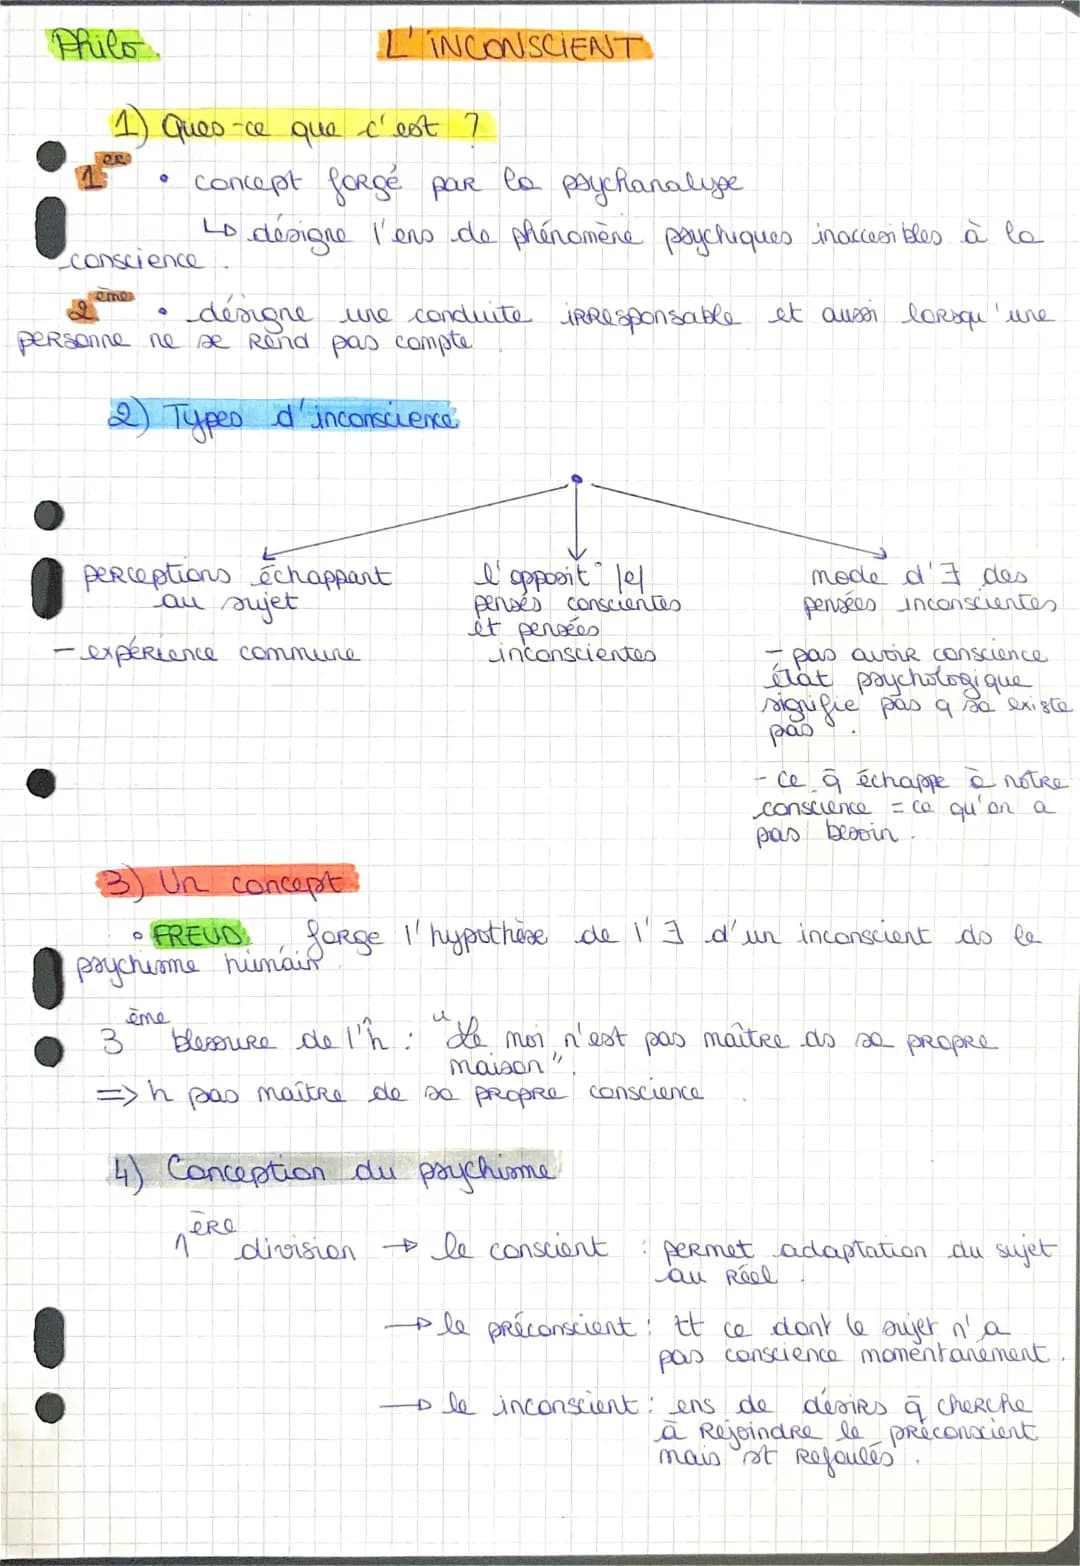 Philo.
L'INCONSCIENT
1) Ques-ce que c'est ?
1er • concept forgé par la psychanalyse
↳ désigne l'ens de phénomène psychiques inaccesibles à la
conscience.
2ème • désigne une conduite irresponsable et aussi lorsqu'une
personne ne se rend pas compte
2) Types d'inconscience
perceptions échappant
au sujet
- expérience commune
l'opposit° /e/
pensés conscientes
et pensées
inconscientes
mode d'∃ des
pensées inconscientes
- pas avoir conscience
état psychologique
signifie pas q sa existe
pas.
- ce q̄ échappe à notre
conscience = ce qu'on a
pas besoin.
3) Un concept
• FREUD forge l'hypothèse de l'∃ d'un inconscient ds le
psychisme humain
3ème blessure de l'h : "Le moi n'est pas maître ds sa propre
maison".
=> h pas maître de sa propre conscience.
4) Conception du psychisme
1ère division → le conscient : permet adaptation du sujet
au réel.
→ le préconscient : tt ce dont le sujet n'a
pas conscience momentanément.
→ le inconscient : ens de désirs q̄ cherche
à rejoindre le préconscient
mais st refoulés.